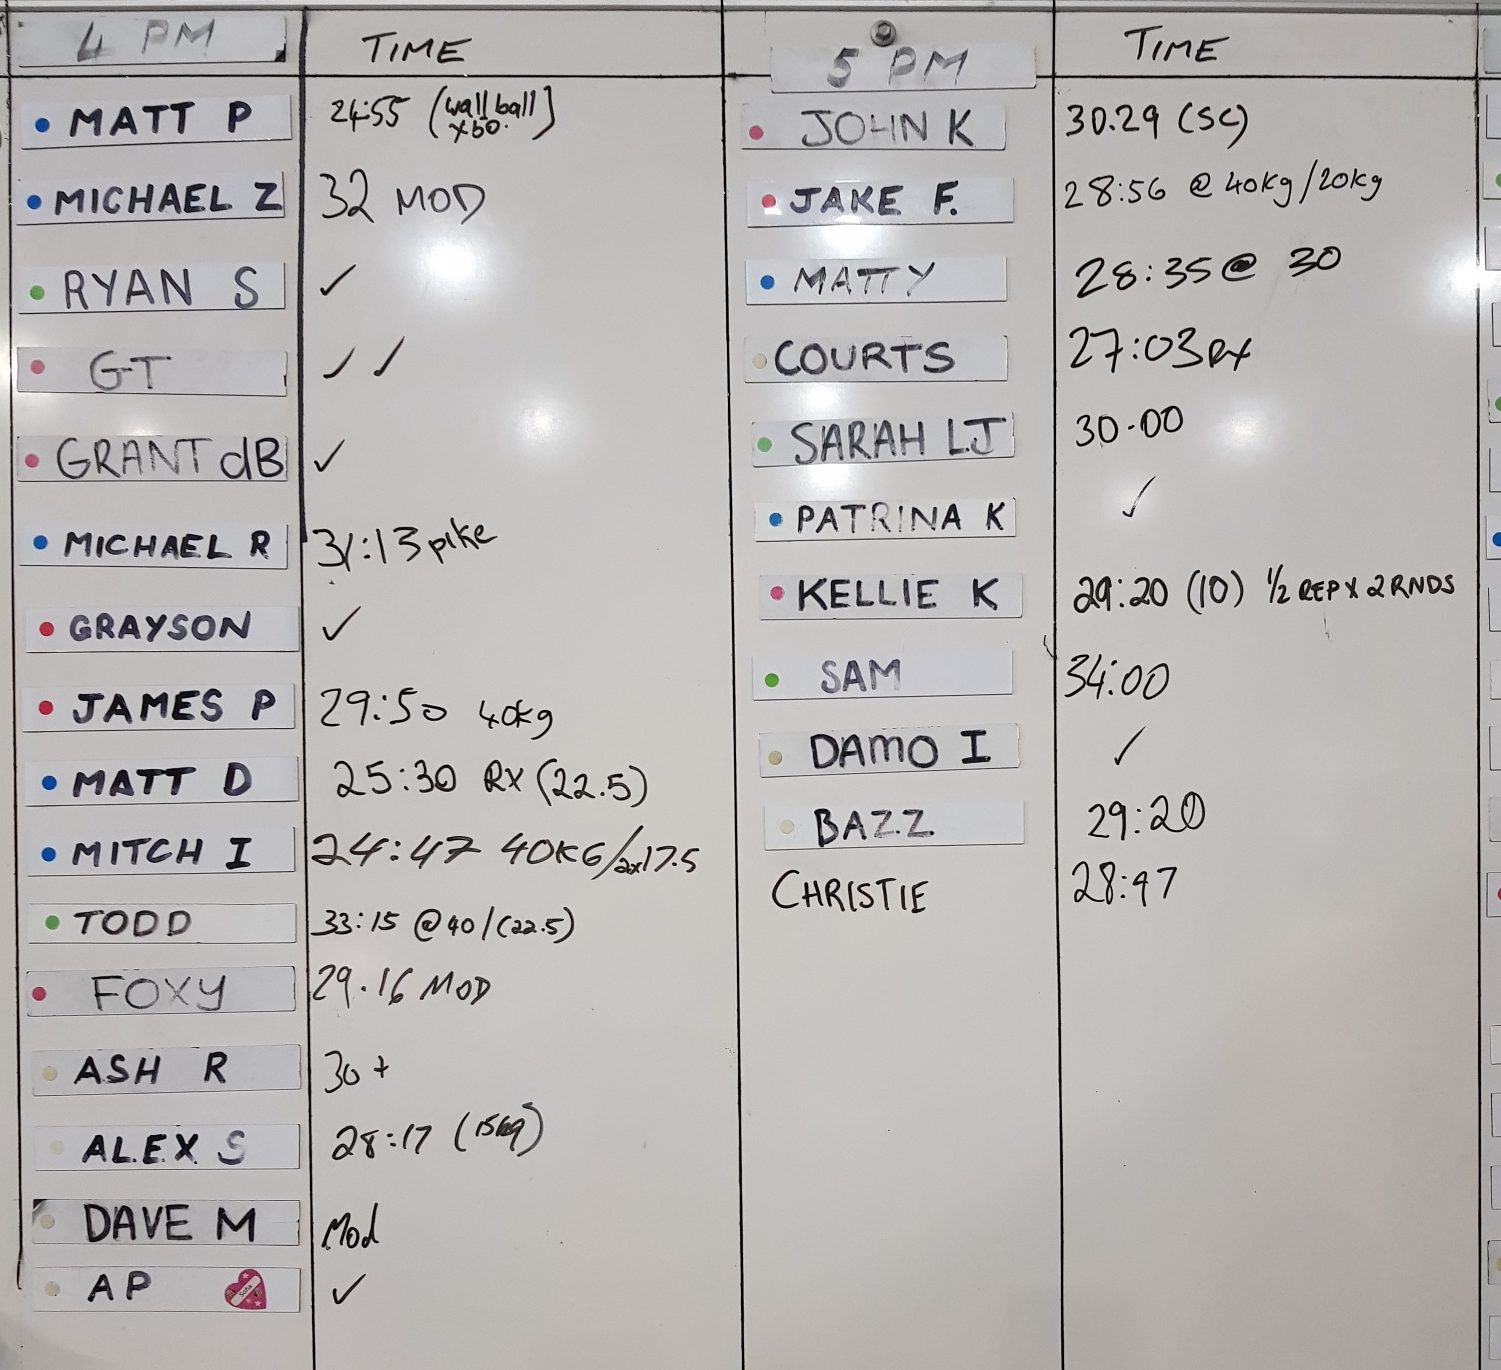 4 PM TIME
MATT P 24:55 (wall ball x50.)
MICHAEL Z 32 MOD
RYAN S ✓
GT ✓ ✓
GRANT dB ✓
MICHAEL R 31:13 pike
GRAYSON ✓
JAMES P 29:50 40kg
MATT D 25:30 RX (22.5)
MITCH I 24:47 40KG/2x17.5
TODD 33:15 @ 40/(22.5)
FOXY 29.16 MOD
ASH R 30+
ALEX S 28:17 (15kg)
DAVE M Mod
AP ✓
5 PM TIME
JOHN K 30.29 (SC)
JAKE F. 28:56 @ 40kg/20kg
MATTY 28:35 @ 30
COURTS 27:03 RX
SARAH LJ 30.00
PATRINA K ✓
KELLIE K 29:20 (10) ½ REP X 2 RNDS
SAM 34:00
DAMO I ✓
BAZZ 29:20
CHRISTIE